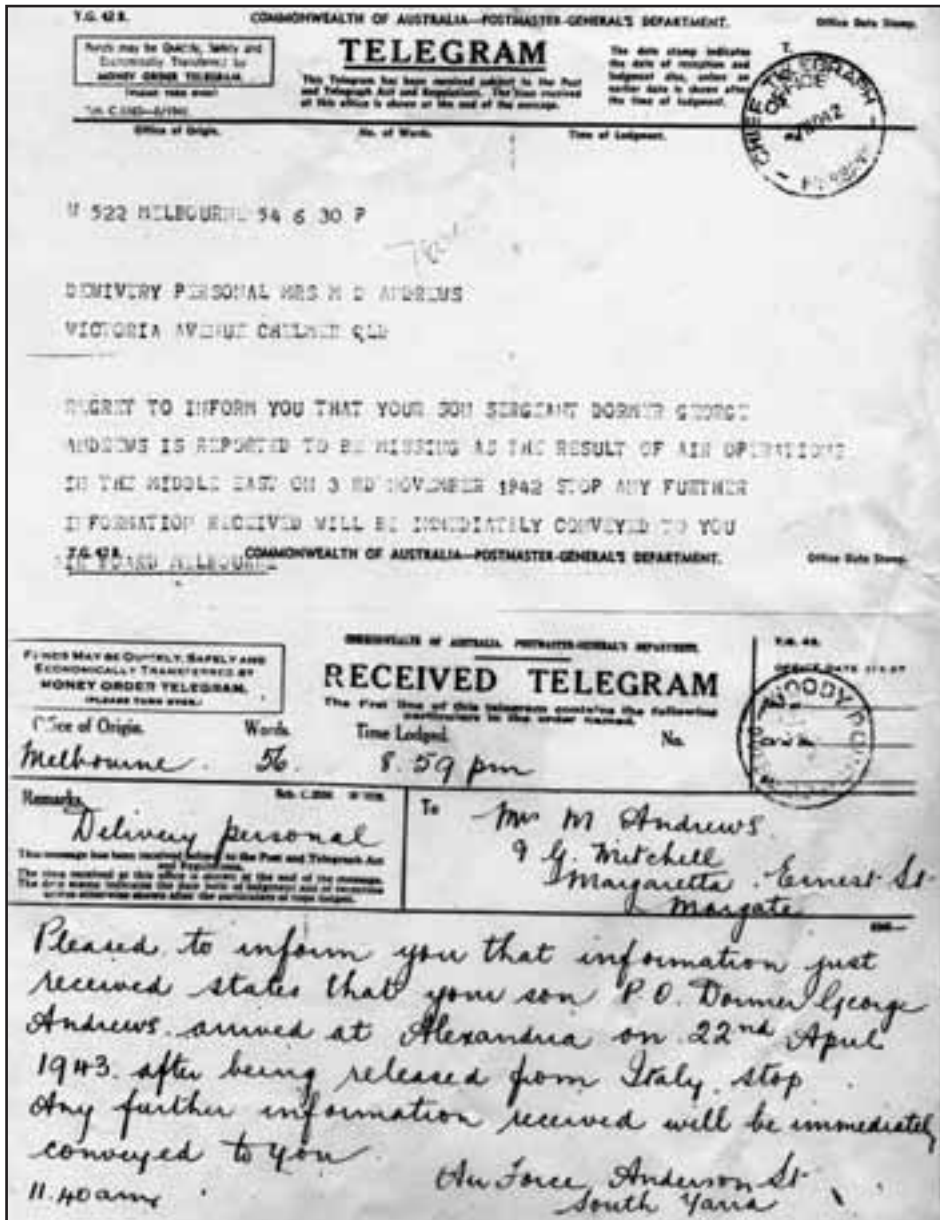 T.G. 42 B. COMMONWEALTH OF AUSTRALIA—POSTMASTER-GENERAL'S DEPARTMENT. Office Date Stamp.
Funds may be Quickly, Safely and
Economically Transferred by
MONEY ORDER TELEGRAM
(PLEASE TURN OVER)
TELEGRAM
This Telegram has been received subject to the Post
and Telegraph Act and Regulations. The time received
at this office is shown at the end of the message.
The date stamp indicates
the date of reception and
lodgment also, unless an
earlier date is shown after
the time of lodgment.
CHIEF TELEGRAPH OFFICE
Office of Origin. No. of Words. Time of Lodgment.
522 MELBOURNE 54 6 30 P
DEWIVERY PERSONAL MRS M D ANDREWS
VICTORIA AVENUE CHELMER QLD
REGRET TO INFORM YOU THAT YOUR SON SERGEANT DORMER GEORGE
ANDREWS IS REPORTED TO BE MISSING AS THE RESULT OF AIR OPERATIONS
IN THE MIDDLE EAST ON 3 RD NOVEMBER 1942 STOP ANY FURTHER
INFORMATION RECEIVED WILL BE IMMEDIATELY CONVEYED TO YOU
T.G. 42 B. COMMONWEALTH OF AUSTRALIA—POSTMASTER-GENERAL'S DEPARTMENT. Office Date Stamp.
AIR BOARD MELBOURNE
COMMONWEALTH OF AUSTRALIA. POSTMASTER-GENERAL'S DEPARTMENT.
FUNDS MAY BE QUICKLY, SAFELY AND
ECONOMICALLY TRANSFERRED BY
MONEY ORDER TELEGRAM.
(PLEASE TURN OVER.)
RECEIVED TELEGRAM
The first line of this telegram contains the following
particulars in the order named.
OFFICE DATE
WOODY
Office of Origin. Words. Time Lodged. No.
Melbourne. 56. 8.59 pm
Remarks.
Delivery personal
This message has been received subject to the Post and Telegraph Act
and Regulations.
The time received at this office is shown at the end of the message.
To Mrs M Andrews
Mitchell
Margaretta. Ernest St
Margate
Pleased to inform you that information just
received states that your son P.O. Dormer George
Andrews arrived at Alexandria on 22nd April
1943 after being released from Italy stop
Any further information received will be immediately
conveyed to you
11.40am
Air Force Anderson St
South Yarra